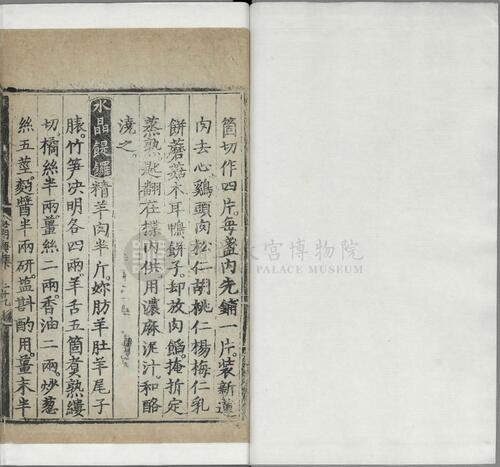 箇切作四片。每盞内先鋪一片。裝新蓮
肉去心鷄頭肉松仁胡桃仁楊梅仁乳
餅蘑菇木耳鴨餅子却放肉餡。掩折定
蒸熟匙翻在楪内供。用濃麻泥汁。和酪
澆之。
水晶饆饠精羊肉半斤妳肪羊肚羊尾子
膔。竹笋决明各四兩羊舌五箇煑熟縷
切。橘絲半兩薑絲二兩。香油二兩。炒葱
絲五莖麪醬半兩研。盬斟酌用。薑末半
宮博物院
PALACE MUSEUM